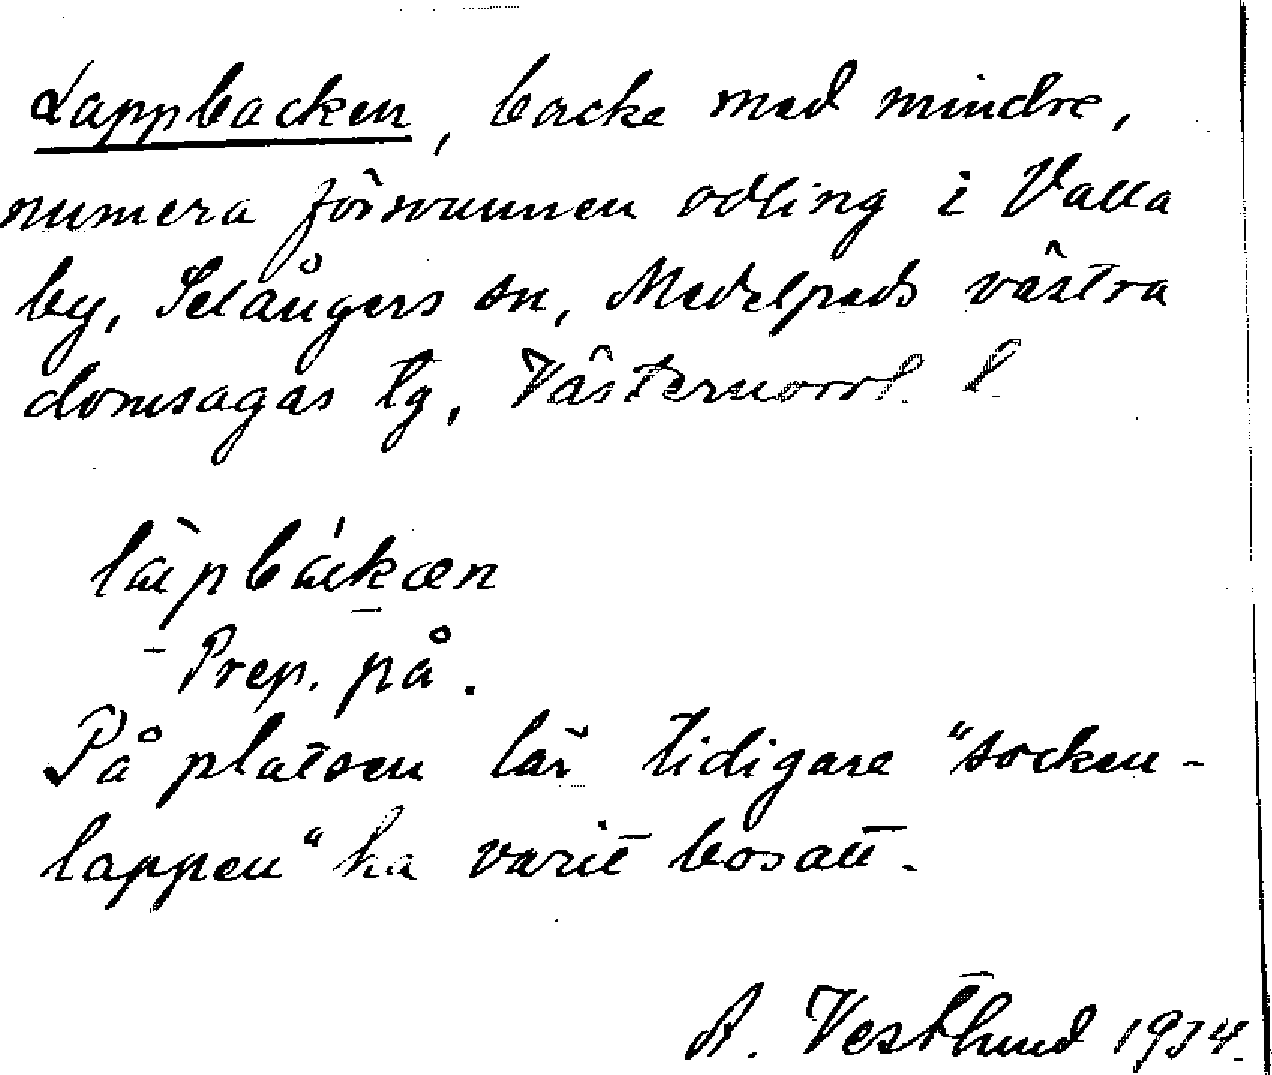 Lappbacken, backe med mindre,
numera försvunnen odling i Valla
by, Selångers sn, Medelpads västra
domsagas tg, Västernorrl. l.
làpbákæn
Prep. på.
På platsen lär tidigare "socken-
lappen" ha varit bosatt.
A. Vestlund 1934.